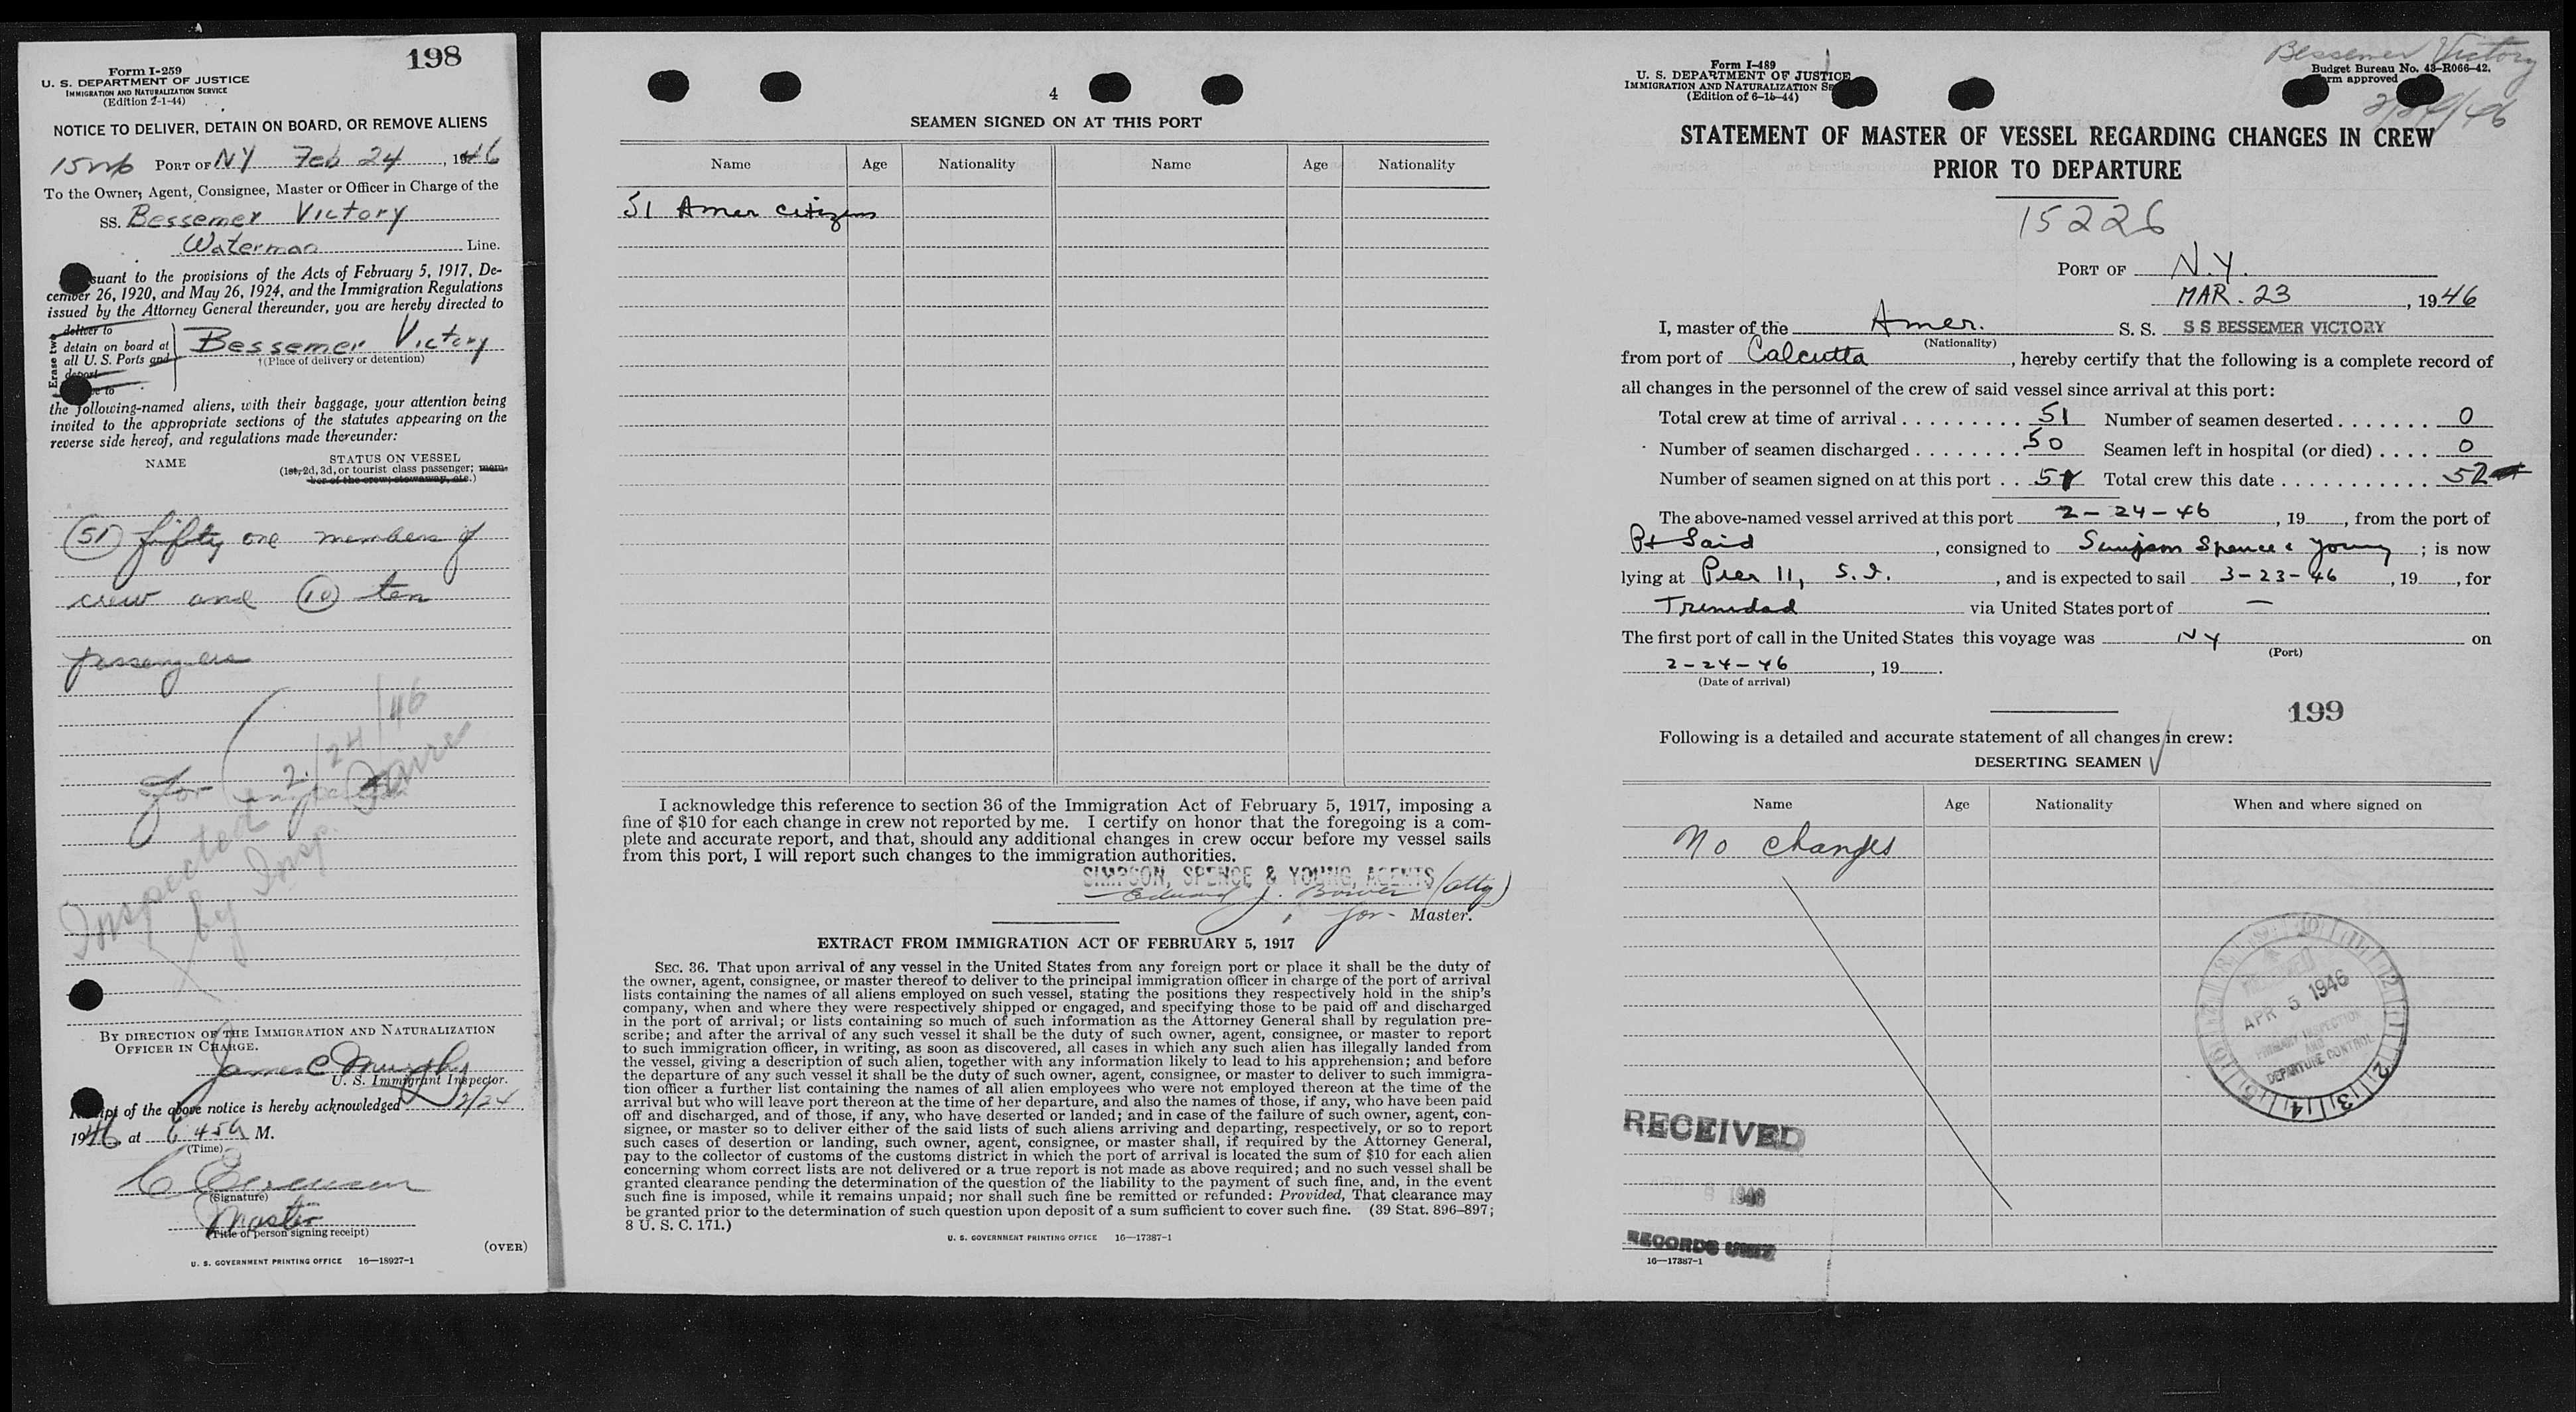 198
Form I-259
U. S. DEPARTMENT OF JUSTICE
IMMIGRATION AND NATURALIZATION SERVICE
(Edition 2-1-44)
NOTICE TO DELIVER, DETAIN ON BOARD, OR REMOVE ALIENS
PORT OF NY Feb 24, 1946
To the Owner, Agent, Consignee, Master or Officer in Charge of the
SS. Bessemer Victory
Waterman Line.
suant to the provisions of the Acts of February 5, 1917, De-
cember 26, 1920, and May 26, 1924, and the Immigration Regulations
issued by the Attorney General thereunder, you are hereby directed to
Erase two
deliver to
detain on board at
all U. S. Ports and
deport
Bessemer Victory
†(Place of delivery or detention)
the following-named aliens, with their baggage, your attention being
invited to the appropriate sections of the statutes appearing on the
reverse side hereof, and regulations made thereunder:
NAME
STATUS ON VESSEL
(1st, 2d, 3d, or tourist class passenger; mem-
ber of the crew; stowaway, etc.)
(51) fifty one members of
crew and (10) ten
passengers
for
2/24/46
Inspected
by Insp.
BY DIRECTION OF THE IMMIGRATION AND NATURALIZATION
OFFICER IN CHARGE.
James C Murphy
U. S. Immigrant Inspector.
Receipt of the above notice is hereby acknowledged 2/24
1946 at 6 45 A M.
(Time)
C
(Signature)
Master
(Title of person signing receipt)
(OVER)
U. S. GOVERNMENT PRINTING OFFICE 16—18927-1
4
SEAMEN SIGNED ON AT THIS PORT
Name Age Nationality Name Age Nationality
51 Amer citizens
I acknowledge this reference to section 36 of the Immigration Act of February 5, 1917, imposing a
fine of $10 for each change in crew not reported by me. I certify on honor that the foregoing is a com-
plete and accurate report, and that, should any additional changes in crew occur before my vessel sails
from this port, I will report such changes to the immigration authorities.
SIMPSON, SPENCE & YOUNG, AGENTS
Edward J. Bower (atty)
for- Master.
EXTRACT FROM IMMIGRATION ACT OF FEBRUARY 5, 1917
SEC. 36. That upon arrival of any vessel in the United States from any foreign port or place it shall be the duty of
the owner, agent, consignee, or master thereof to deliver to the principal immigration officer in charge of the port of arrival
lists containing the names of all aliens employed on such vessel, stating the positions they respectively hold in the ship's
company, when and where they were respectively shipped or engaged, and specifying those to be paid off and discharged
in the port of arrival; or lists containing so much of such information as the Attorney General shall by regulation pre-
scribe; and after the arrival of any such vessel it shall be the duty of such owner, agent, consignee, or master to report
to such immigration officer, in writing, as soon as discovered, all cases in which any such alien has illegally landed from
the vessel, giving a description of such alien, together with any information likely to lead to his apprehension; and before
the departure of any such vessel it shall be the duty of such owner, agent, consignee, or master to deliver to such immigra-
tion officer a further list containing the names of all alien employees who were not employed thereon at the time of the
arrival but who will leave port thereon at the time of her departure, and also the names of those, if any, who have been paid
off and discharged, and of those, if any, who have deserted or landed; and in case of the failure of such owner, agent, con-
signee, or master so to deliver either of the said lists of such aliens arriving and departing, respectively, or so to report
such cases of desertion or landing, such owner, agent, consignee, or master shall, if required by the Attorney General,
pay to the collector of customs of the customs district in which the port of arrival is located the sum of $10 for each alien
concerning whom correct lists are not delivered or a true report is not made as above required; and no such vessel shall be
granted clearance pending the determination of the question of the liability to the payment of such fine, and, in the event
such fine is imposed, while it remains unpaid; nor shall such fine be remitted or refunded: Provided, That clearance may
be granted prior to the determination of such question upon deposit of a sum sufficient to cover such fine. (39 Stat. 896–897;
8 U. S. C. 171.)
U. S. GOVERNMENT PRINTING OFFICE 16—17387-1
Form I-489
U. S. DEPARTMENT OF JUSTICE
IMMIGRATION AND NATURALIZATION
(Edition of 6-15-44)
Bessemer Victory
Budget Bureau No. 43-R066-42.
Form approved
2/24/46
STATEMENT OF MASTER OF VESSEL REGARDING CHANGES IN CREW
PRIOR TO DEPARTURE
15226
PORT OF N.Y.
MAR. 23, 1946
I, master of the Amer. S. S. S S BESSEMER VICTORY
(Nationality)
from port of Calcutta, hereby certify that the following is a complete record of
all changes in the personnel of the crew of said vessel since arrival at this port:
Total crew at time of arrival . . . . . . . . . . 51 Number of seamen deserted . . . . . . . 0
Number of seamen discharged . . . . . . . . 50 Seamen left in hospital (or died) . . . . 0
Number of seamen signed on at this port . . 51 Total crew this date . . . . . . . . . . . . 52
The above-named vessel arrived at this port 2-24-46, 19, from the port of
Pt Said, consigned to Simpson Spence & Young; is now
lying at Pier 11, S.I., and is expected to sail 3-23-46, 19, for
Trinidad via United States port of —
The first port of call in the United States this voyage was NY on
(Port)
2-24-46, 19.
(Date of arrival)
199
Following is a detailed and accurate statement of all changes in crew:
DESERTING SEAMEN
Name Age Nationality When and where signed on
No changes
RECEIVED
APR 5 1946
PRIMARY INSPECTION
AND
DEPARTURE CONTROL
RECEIVED
8 1946
RECORDS UNIT
16—17387-1